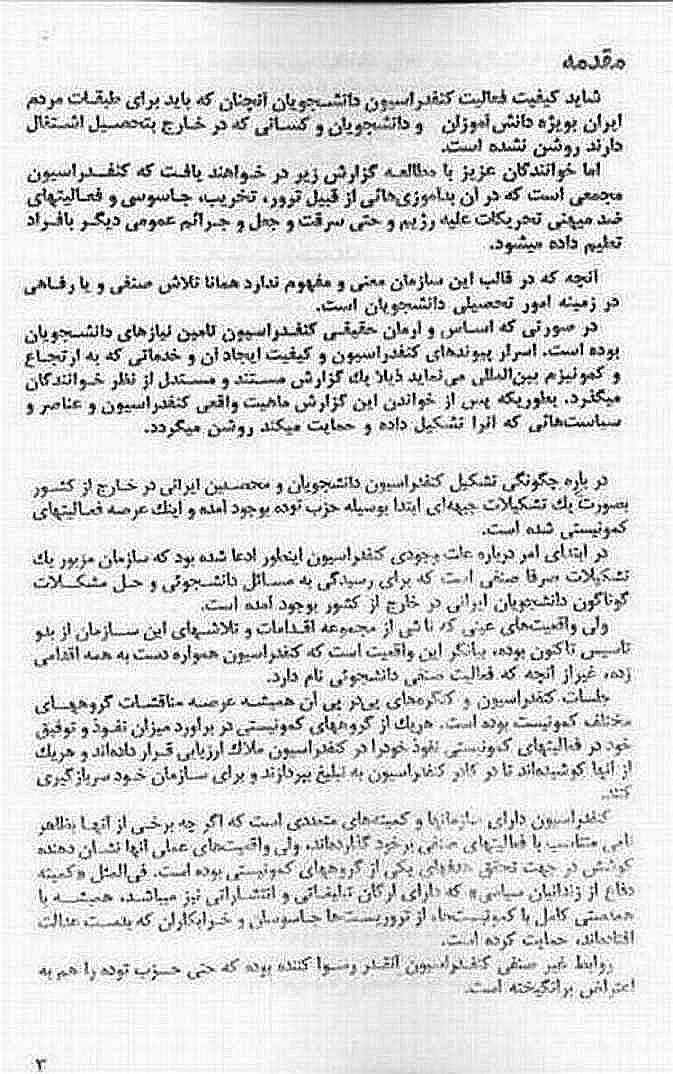 مقدمه
شاید کیفیت فعالیت کنفدراسیون دانشجویان آنچنان که باید برای طبقات مردم
ایران بویژه دانش آموزان و دانشجویان و کسانی که در خارج بتحصیل اشتغال
دارند روشن نشده است.
اما خوانندگان عزیز با مطالعه گزارش زیر در خواهند یافت که کنفدراسیون
مجمعی است که در آن بدآموزی‌هائی از قبیل ترور، تخریب، جاسوسی و فعالیتهای
ضد میهنی تحریکات علیه رژیم و حتی سرقت و جعل و جرائم عمومی دیگر بافراد
تعلیم داده میشود.
آنچه که در قالب این سازمان معنی و مفهوم ندارد همانا تلاش صنفی و یا رفاهی
در زمینه امور تحصیلی دانشجویان است.
در صورتی که اساس و آرمان حقیقی کنفدراسیون تامین نیازهای دانشجویان
بوده است. اسرار پیوندهای کنفدراسیون و کیفیت ایجاد آن و خدماتی که به ارتجاع
و کمونیزم بین‌المللی می‌نماید ذیلا یك گزارش مستند و مستدل از نظر خوانندگان
میگذرد. بطوریکه پس از خواندن این گزارش ماهیت واقعی کنفدراسیون و عناصر و
سیاست‌هائی که آنرا تشکیل داده و حمایت میکند روشن میگردد.
در باره چگونگی تشکیل کنفدراسیون دانشجویان و محصلین ایرانی در خارج از کشور
بصورت یك تشکیلات جبهه‌ای ابتدا بوسیله حزب توده بوجود آمده و اینك عرصه فعالیتهای
کمونیستی شده است.
در ابتدای امر درباره علت وجودی کنفدراسیون اینطور ادعا شده بود که سازمان مزبور یك
تشکیلات صرفا صنفی است که برای رسیدگی به مسائل دانشجوئی و حل مشکلات
گوناگون دانشجویان ایرانی در خارج از کشور بوجود آمده است.
ولی واقعیت‌های عینی که ناشی از مجموعه اقدامات و تلاشهای این سازمان از بدو
تاسیس تاکنون بوده، بیانگر این واقعیت است که کنفدراسیون همواره دست به همه اقدامی
زده، غیراز آنچه که فعالیت صنفی دانشجوئی نام دارد.
جلسات کنفدراسیون و کنگره‌های پی‌در پی آن همیشه عرصه مناقشات گروههای
مختلف کمونیست بوده است. هریك از گروههای کمونیستی در برآورد میزان نفوذ و توفیق
خود در فعالیتهای کمونیستی نفوذ خودرا در کنفدراسیون ملاك ارزیابی قرار داده‌اند و هریك
از آنها کوشیده‌اند تا در کادر کنفدراسیون به تبلیغ بپردازند و برای سازمان خود سربازگیری
کنند.
کنفدراسیون دارای سازمانها و کمیته‌های متعددی است که اگر چه برخی از آنها بظاهر
نامی متناسب با فعالیتهای صنفی برخود گذارده‌اند، ولی واقعیت‌های عملی آنها نشان دهنده
کوشش در جهت تحقق هدفهای یکی از گروههای کمونیستی بوده است. فی‌المثل «کمیته
دفاع از زندانیان سیاسی» که دارای ارکان تبلیغاتی و انتشاراتی نیز میباشد، همیشه با
همدستی کامل با کمونیست‌ها، از تروریست‌ها جاسوسان و خرابکاران که بدست عدالت
افتاده‌اند، حمایت کرده است.
روابط غیر صنفی کنفدراسیون آنقدر رسوا کننده بوده که حتی حزب توده را هم به
اعتراض برانگیخته است.
۳